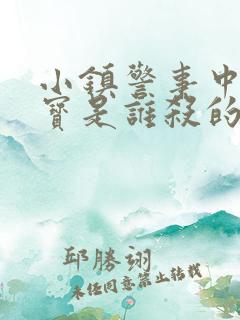 小鎮警事中
寶是誰殺的
邱勝翊
未任同意禁止轉載